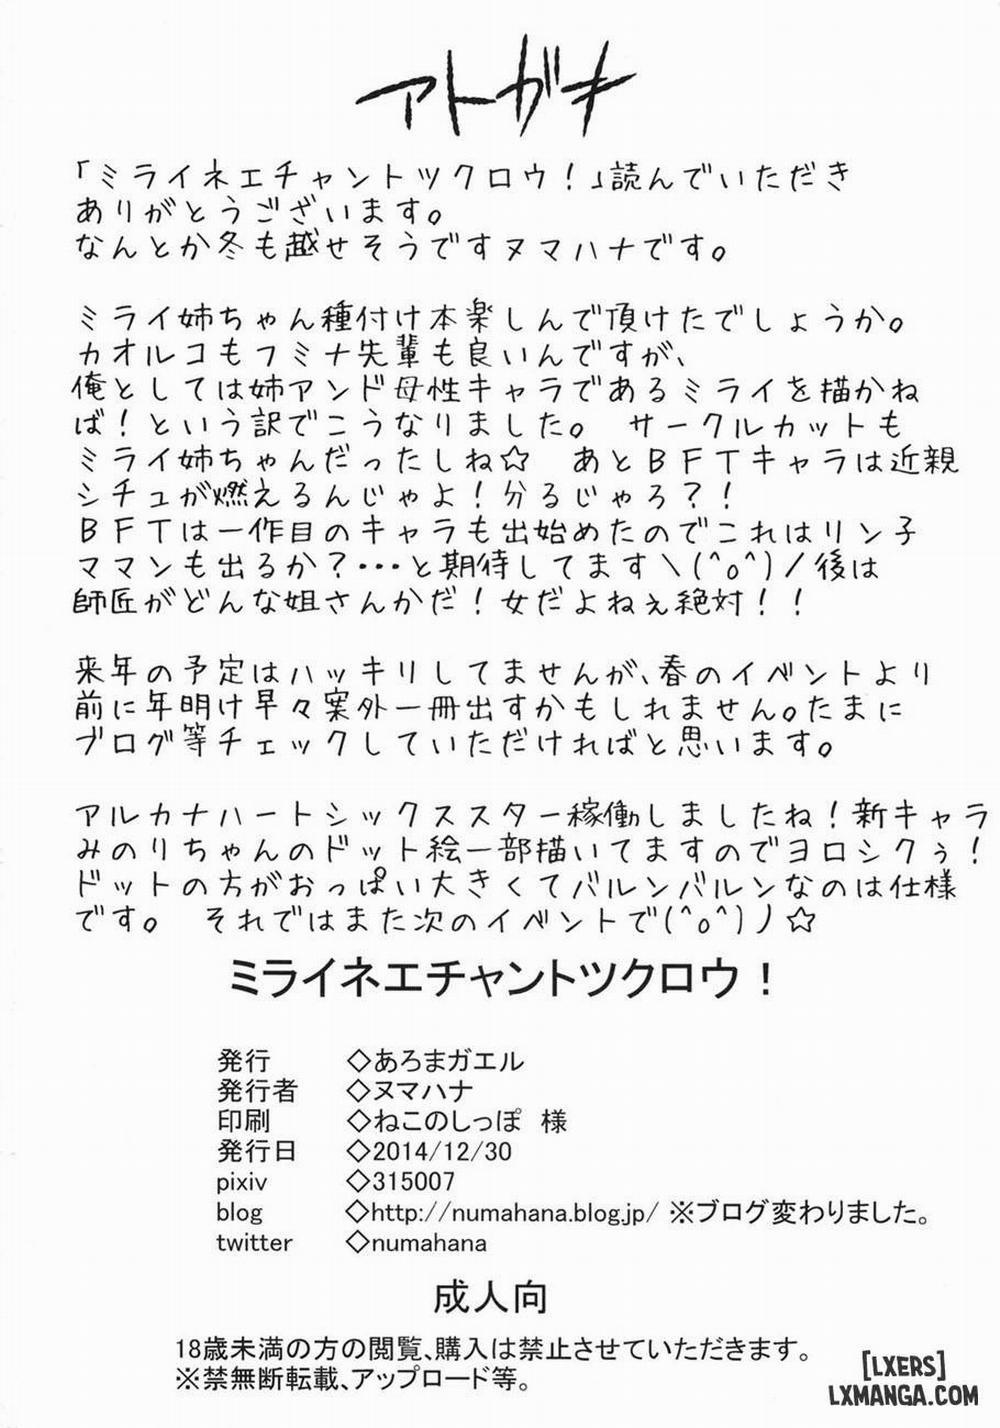 アトガキ
「ミライネエチャントツクロウ！」読んでいただき
ありがとうございます。
なんとか冬も越せそうですヌマハナです。
ミライ姉ちゃん種付け本楽しんで頂けたでしょうか。
カオルコもフミナ先輩も良いんですが、
俺としては姉アンド母性キャラであるミライを描かね
ば！という訳でこうなりました。　サークルカットも
ミライ姉ちゃんだったしね☆　あとＢＦＴキャラは近親
シチュが燃えるんじゃよ！分るじゃろ？！
ＢＦＴは一作目のキャラも出始めたのでこれはリン子
ママンも出るか？・・・と期待してます＼(^o^)／後は
師匠がどんな姐さんかだ！女だよねぇ絶対！！
来年の予定はハッキリしてませんが、春のイベントより
前に年明け早々案外一冊出すかもしれません。たまに
ブログ等チェックしていただければと思います。
アルカナハートシックススター稼働しましたね！新キャラ
みのりちゃんのドット絵一部描いてますのでヨロシクぅ！
ドットの方がおっぱい大きくてバルンバルンなのは仕様
です。　それではまた次のイベントで(^o^)ノ☆
ミライネエチャントツクロウ！
発行　◇あろまガエル
発行者　◇ヌマハナ
印刷　◇ねこのしっぽ　様
発行日　◇2014/12/30
pixiv　◇315007
blog　◇http://numahana.blog.jp/ ※ブログ変わりました。
twitter　◇numahana
成人向
18歳未満の方の閲覧、購入は禁止させていただきます。
※禁無断転載、アップロード等。
[LXERS]
LXMANGA.COM